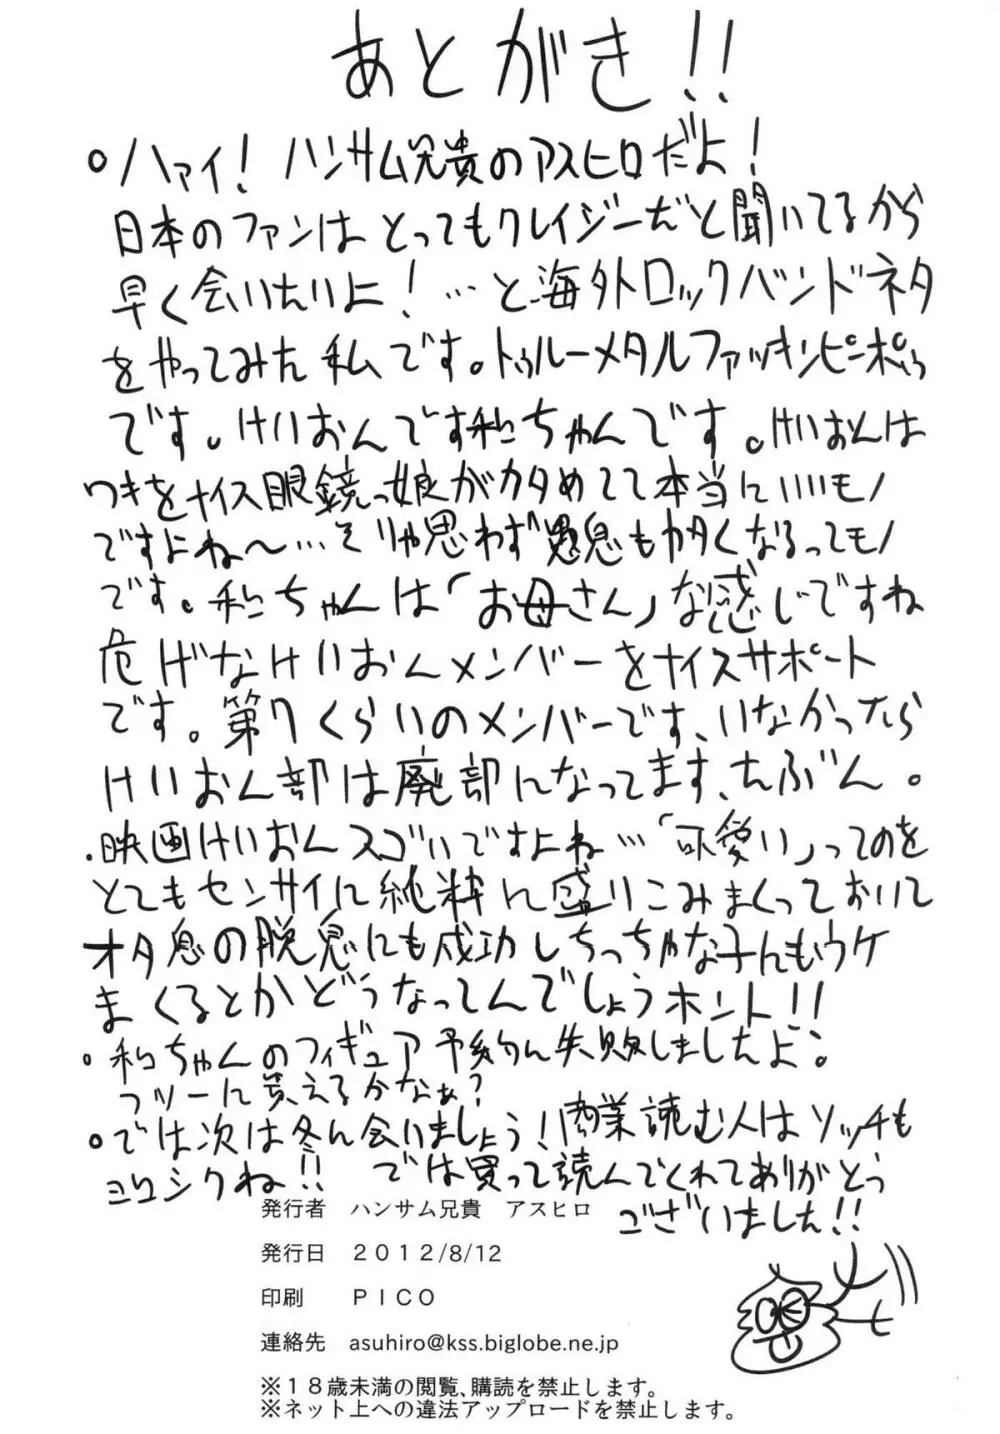 あとがき!!
。ハァイ！ハンサム兄貴のアスヒロだよ！
日本のファンはとってもクレイジーだと聞いてるから
早く会いたいよ！…と海外ロックバンドネタ
をやってみた私です。トゥルーメタルファッキンピンポゥ
です。けいおんです和ちゃんです。けいおんは
ワキをナイス眼鏡っ娘がカタめてて本当にいいモノ
ですよね〜…そりゃ思わず愚息も力タくなるってモノ
です。和ちゃんは「お母さん」な感じですね
危げなけいおんメンバーをナイスサポート
です。第7くらいのメンバーです、いなかったら
けいおん部は廃部になってます、たぶん。
・映画けいおんスゴいですよね…「可愛い」ってのを
とてもセンサイに純粋に盛りこみまくっておいて
オタ息の脱息にも成功しちっちゃな子にもウケ
まくるとかどうなってんでしょうホント!!
。和ちゃんのフィギュア予約に失敗しましたよ。
フツーに買えるかなぁ?
。では次は冬に会いましょう！商業読む人はソッチも
ヨロシクね!! では買って読んでくれてありがとう
ございました!!
発行者 ハンサム兄貴 アスヒロ
発行日 ２０１２/８/１２
印刷 ＰＩＣＯ
連絡先 asuhiro@kss.biglobe.ne.jp
※１８歳未満の閲覧、購読を禁止します。
※ネット上への違法アップロードを禁止します。